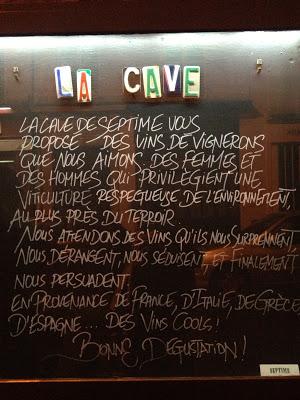 LA CAVE
LA CAVE DE SEPTIME VOUS
PROPOSE DES VINS DE VIGNERONS
QUE NOUS AIMONS. DES FEMMES ET
DES HOMMES QUI PRIVILÉGIENT UNE
VITICULTURE RESPECTUEUSE DE L'ENVIRONNEMENT,
AU PLUS PRÈS DU TERROIR.
NOUS ATTENDONS DES VINS QU'ILS NOUS SURPRENNENT
NOUS DÉRANGENT, NOUS SÉDUISENT, ET FINALEMENT
NOUS PERSUADENT.
EN PROVENANCE DE FRANCE, D'ITALIE, DE GRÈCE,
D'ESPAGNE... DES VINS COOLS!
BONNE DÉGUSTATION!
SEPTIME